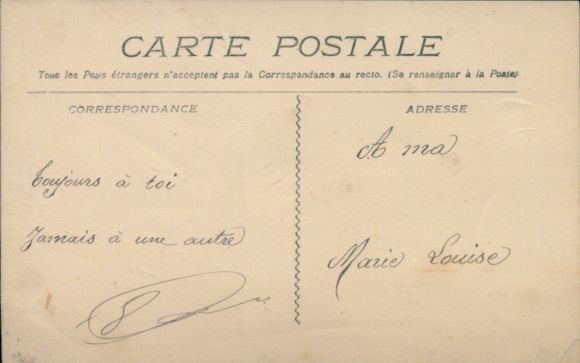 CARTE POSTALE
Tous les Pays étrangers n'acceptent pas la Correspondance au recto. (Se renseigner à la Poste)
CORRESPONDANCE
ADRESSE
A ma
Toujours à toi
Jamais à une autre
Marie Louise